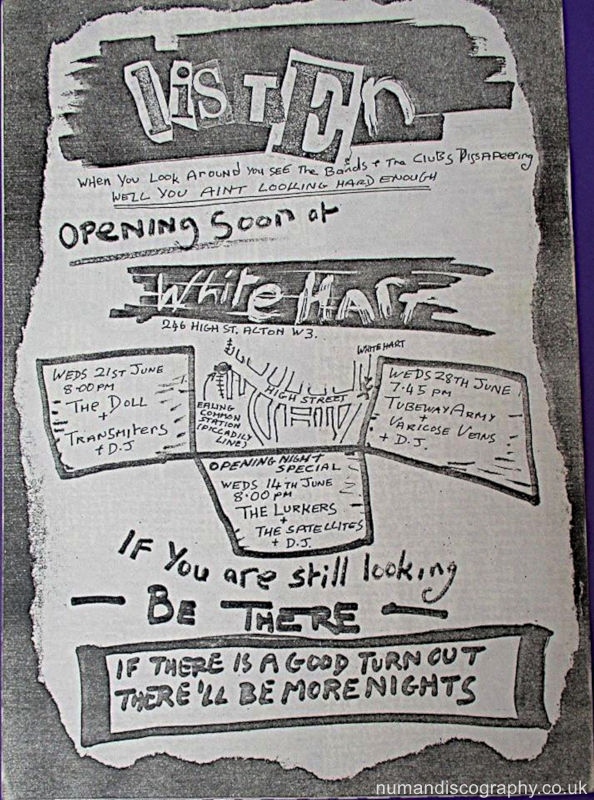 LisTEn
When You Look Around You See The Bands + The Clubs Dissapeering
WELL YOU AINT LOOKING HARD ENOUGH
OPENING Soon at
White HART
246 HIGH ST. ALTON W3.
WEDS 21ST JUNE
8:00PM
THE DOLL
+
TRANSMITERS
+ D.J
WHITE HART
HIGH STREET
EALING
COMMON
STATION
(PICCADILY
LINE)
WEDS 28TH JUNE
7:45 PM
TUBEWAY ARMY
+
VARICOSE VEINS
+ D.J.
OPENING NIGHT
SPECIAL
WEDS 14TH JUNE
8:00 PM
THE LURKERS
+
THE SATELLITES
+ D.J.
IF You are still looking
— BE THERE —
IF THERE IS A GOOD TURN OUT
THERE'LL BE MORE NIGHTS
numandiscography.co.uk